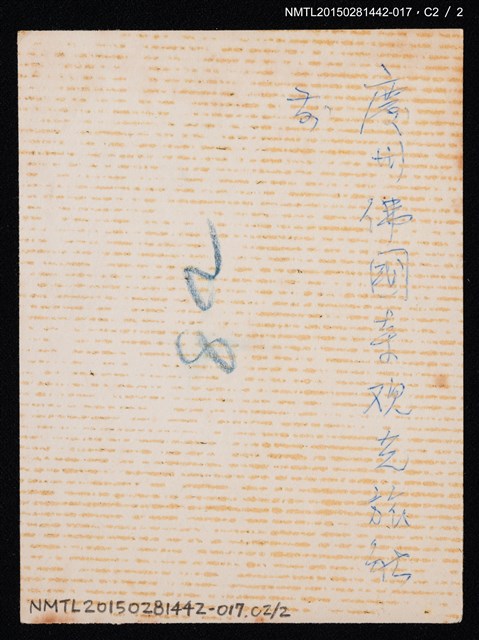 NMTL20150281442-017，C2 / 2
廣州佛國寺观光旅社
前
82
NMTL20150281442-017.02/2